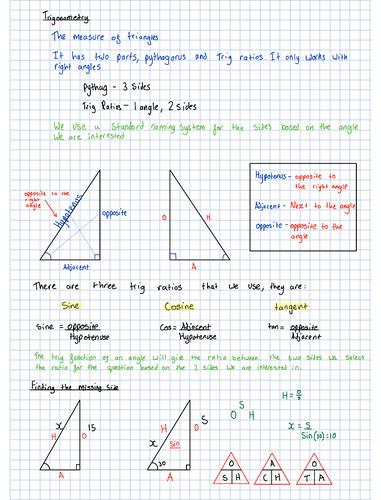 Trigonometry
The measure of triangles
It has two parts, pythagorus and Trig ratios. It only works with
right angles
Pythag - 3 Sides
Trig Ratios - 1 angle, 2 sides
We use a Standard naming System for the sides based on the angle
we are interested
opposite to the
right
angle
Hypotenus
opposite
Adjacent
O
H
A
Hypotenus - opposite to
the right angle
Adjacent - Next to the angle
opposite - opposite to the
angle
There are three trig ratios that we use, they are:
Sine
Cosine
tangent
Sine = opposite
Hypotenuse
Cos = Adjacent
Hypotenuse
tan = opposite
Adjacent
The trig function of an angle will give the ratio between the two sides we select
the ratio for the question based on the 2 sides we are interested in.
Finding the missing side
x
15
H
O
A
x
H
S
O
sin
30
A
S
O H
H = O
S
x = S
Sin(30)=10
O
S H
A
C H
O
T A